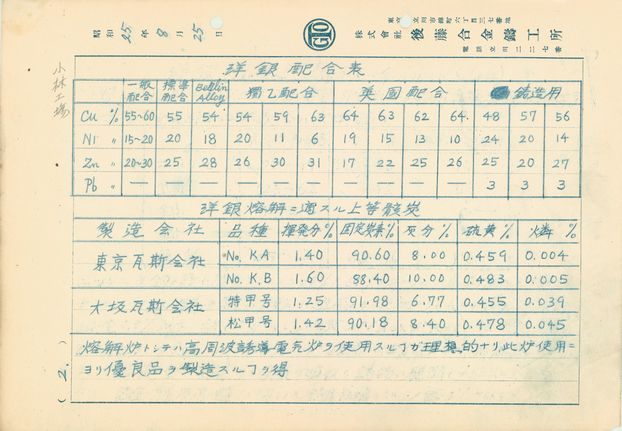 昭和25年8月25日
東京都立川市錦町六丁目三七番地
株式会社 後藤合金鑄工所
電話立川二二七番
GTO
小林工場
洋銀配合表
一般配合 標準配合 Berlin Alloy 獨乙配合 英國配合 鋳造用
Cu % 55~60 55 54 54 59 63 64 63 62 64. 48 57 56
Ni 〃 15~20 20 18 20 11 6 19 15 13 10 24 20 14
Zn 〃 20~30 25 28 26 30 31 17 22 25 26 25 20 27
Pb 〃 — — — — — — — — — — 3 3 3
洋銀熔解ニ適スル上等骸炭
製造会社 品種 揮発分% 固定炭素% 灰分% 硫黄% 燐%
東京瓦斯会社 No. KA 1.40 90.60 8.00 0.459 0.004
No. K.B 1.60 88.40 10.00 0.483 0.005
大坂瓦斯会社 特甲号 1.25 91.98 6.77 0.455 0.039
松甲号 1.42 90.18 8.40 0.478 0.045
熔解炉トシテハ高周波誘導電気炉ヲ使用スルヿガ理想的ナリ,此炉使用ニ
ヨリ優良品ヲ製造スルヿヲ得
(2.)